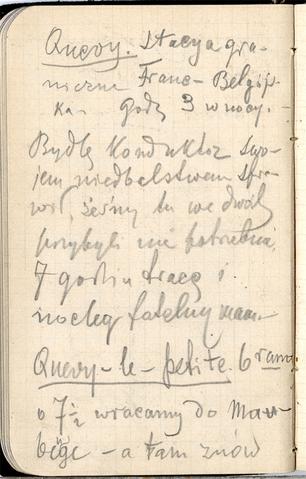 Quevy. Stacya gra-
niczna Franc-Belgijs-
ka - godz 3 w nocy.
Bydlę konduktor swo-
jem niedbalstwem spra-
wił, żeśmy tu we dwóch
przybyli nie potrzebnie,
7 godzin tracę i
nocleg fatalny mam.
Quevy-le-petite. 6 rano
o 7 1/2 wracamy do Mau-
beuge - a tam znów